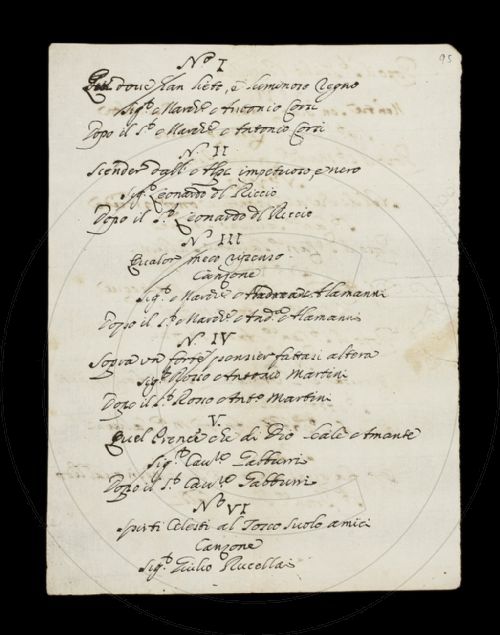 95
No I
Qui dove han lieto, e luminoso Regno
Sigr. March: Antonio Corsi
Dopo il Sr. March: Antonio Corsi
N. II
Scender dall' Alpi impetuoso, e nero
Sigr. Leonardo del Riccio
Dopo il Sr. Leonardo del Riccio
No III
meco
Canzone
Sigr. March: Andrea Alamanni
Dopo il Sr. March: And.a Alamanni
N. IV
Sopra un forte pensier fattasi altera
Sigr. Rosso Antonio Martini
Dopo il Sr. Rosso Anto. Martini
V.
Quel Prence che di Dio leale Amante
Sigr. Cavre. Gabburri
Dopo il Sr. Cavre. Gabburri
No VI
Spirti Celesti al Tosco Suolo amici
Canzone
Sigr. Giulio Rucellai